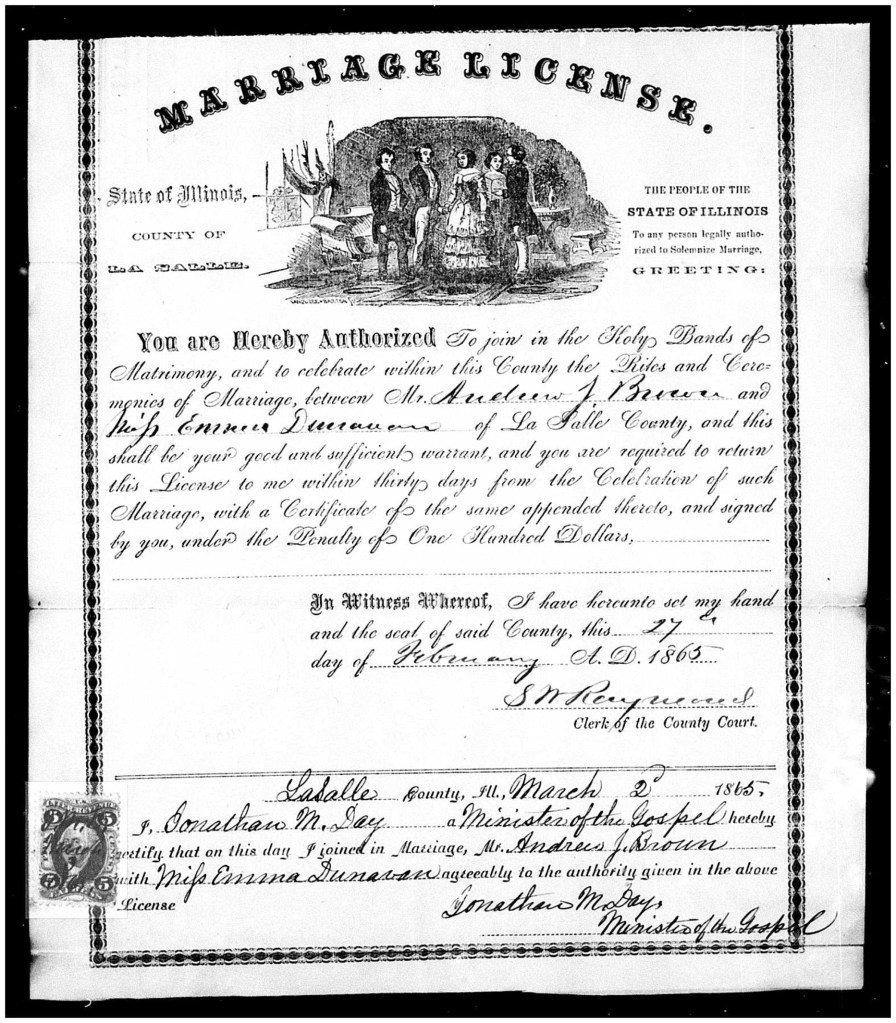 MARRIAGE LICENSE.
State of Illinois,
COUNTY OF
LA SALLE.
THE PEOPLE OF THE
STATE OF ILLINOIS
To any person legally autho-
rized to Solemnize Marriage,
GREETING:
You are Hereby Authorized To join in the Holy Bands of
Matrimony, and to celebrate within this County the Rites and Cere-
monies of Marriage, between Mr. Andrew J. Brown and
Miss Emma Dunavan of La Salle County, and this
shall be your good and sufficient warrant, and you are required to return
this License to me within thirty days from the Celebration of such
Marriage, with a Certificate of the same appended thereto, and signed
by you, under the Penalty of One Hundred Dollars,
In Witness Whereof, I have hereunto set my hand
and the seal of said County, this 27th
day of February A. D. 1865
S W Raymond
Clerk of the County Court.
LaSalle County, Ill., March 2d 1865.
I, Jonathan M. Day a Minister of the Gospel hereby
certify that on this day I joined in Marriage, Mr. Andrew J. Brown
with Miss Emma Dunavan agreeably to the authority given in the above
License
Jonathan M. Day,
Minister of the Gospel
5 5
5 5